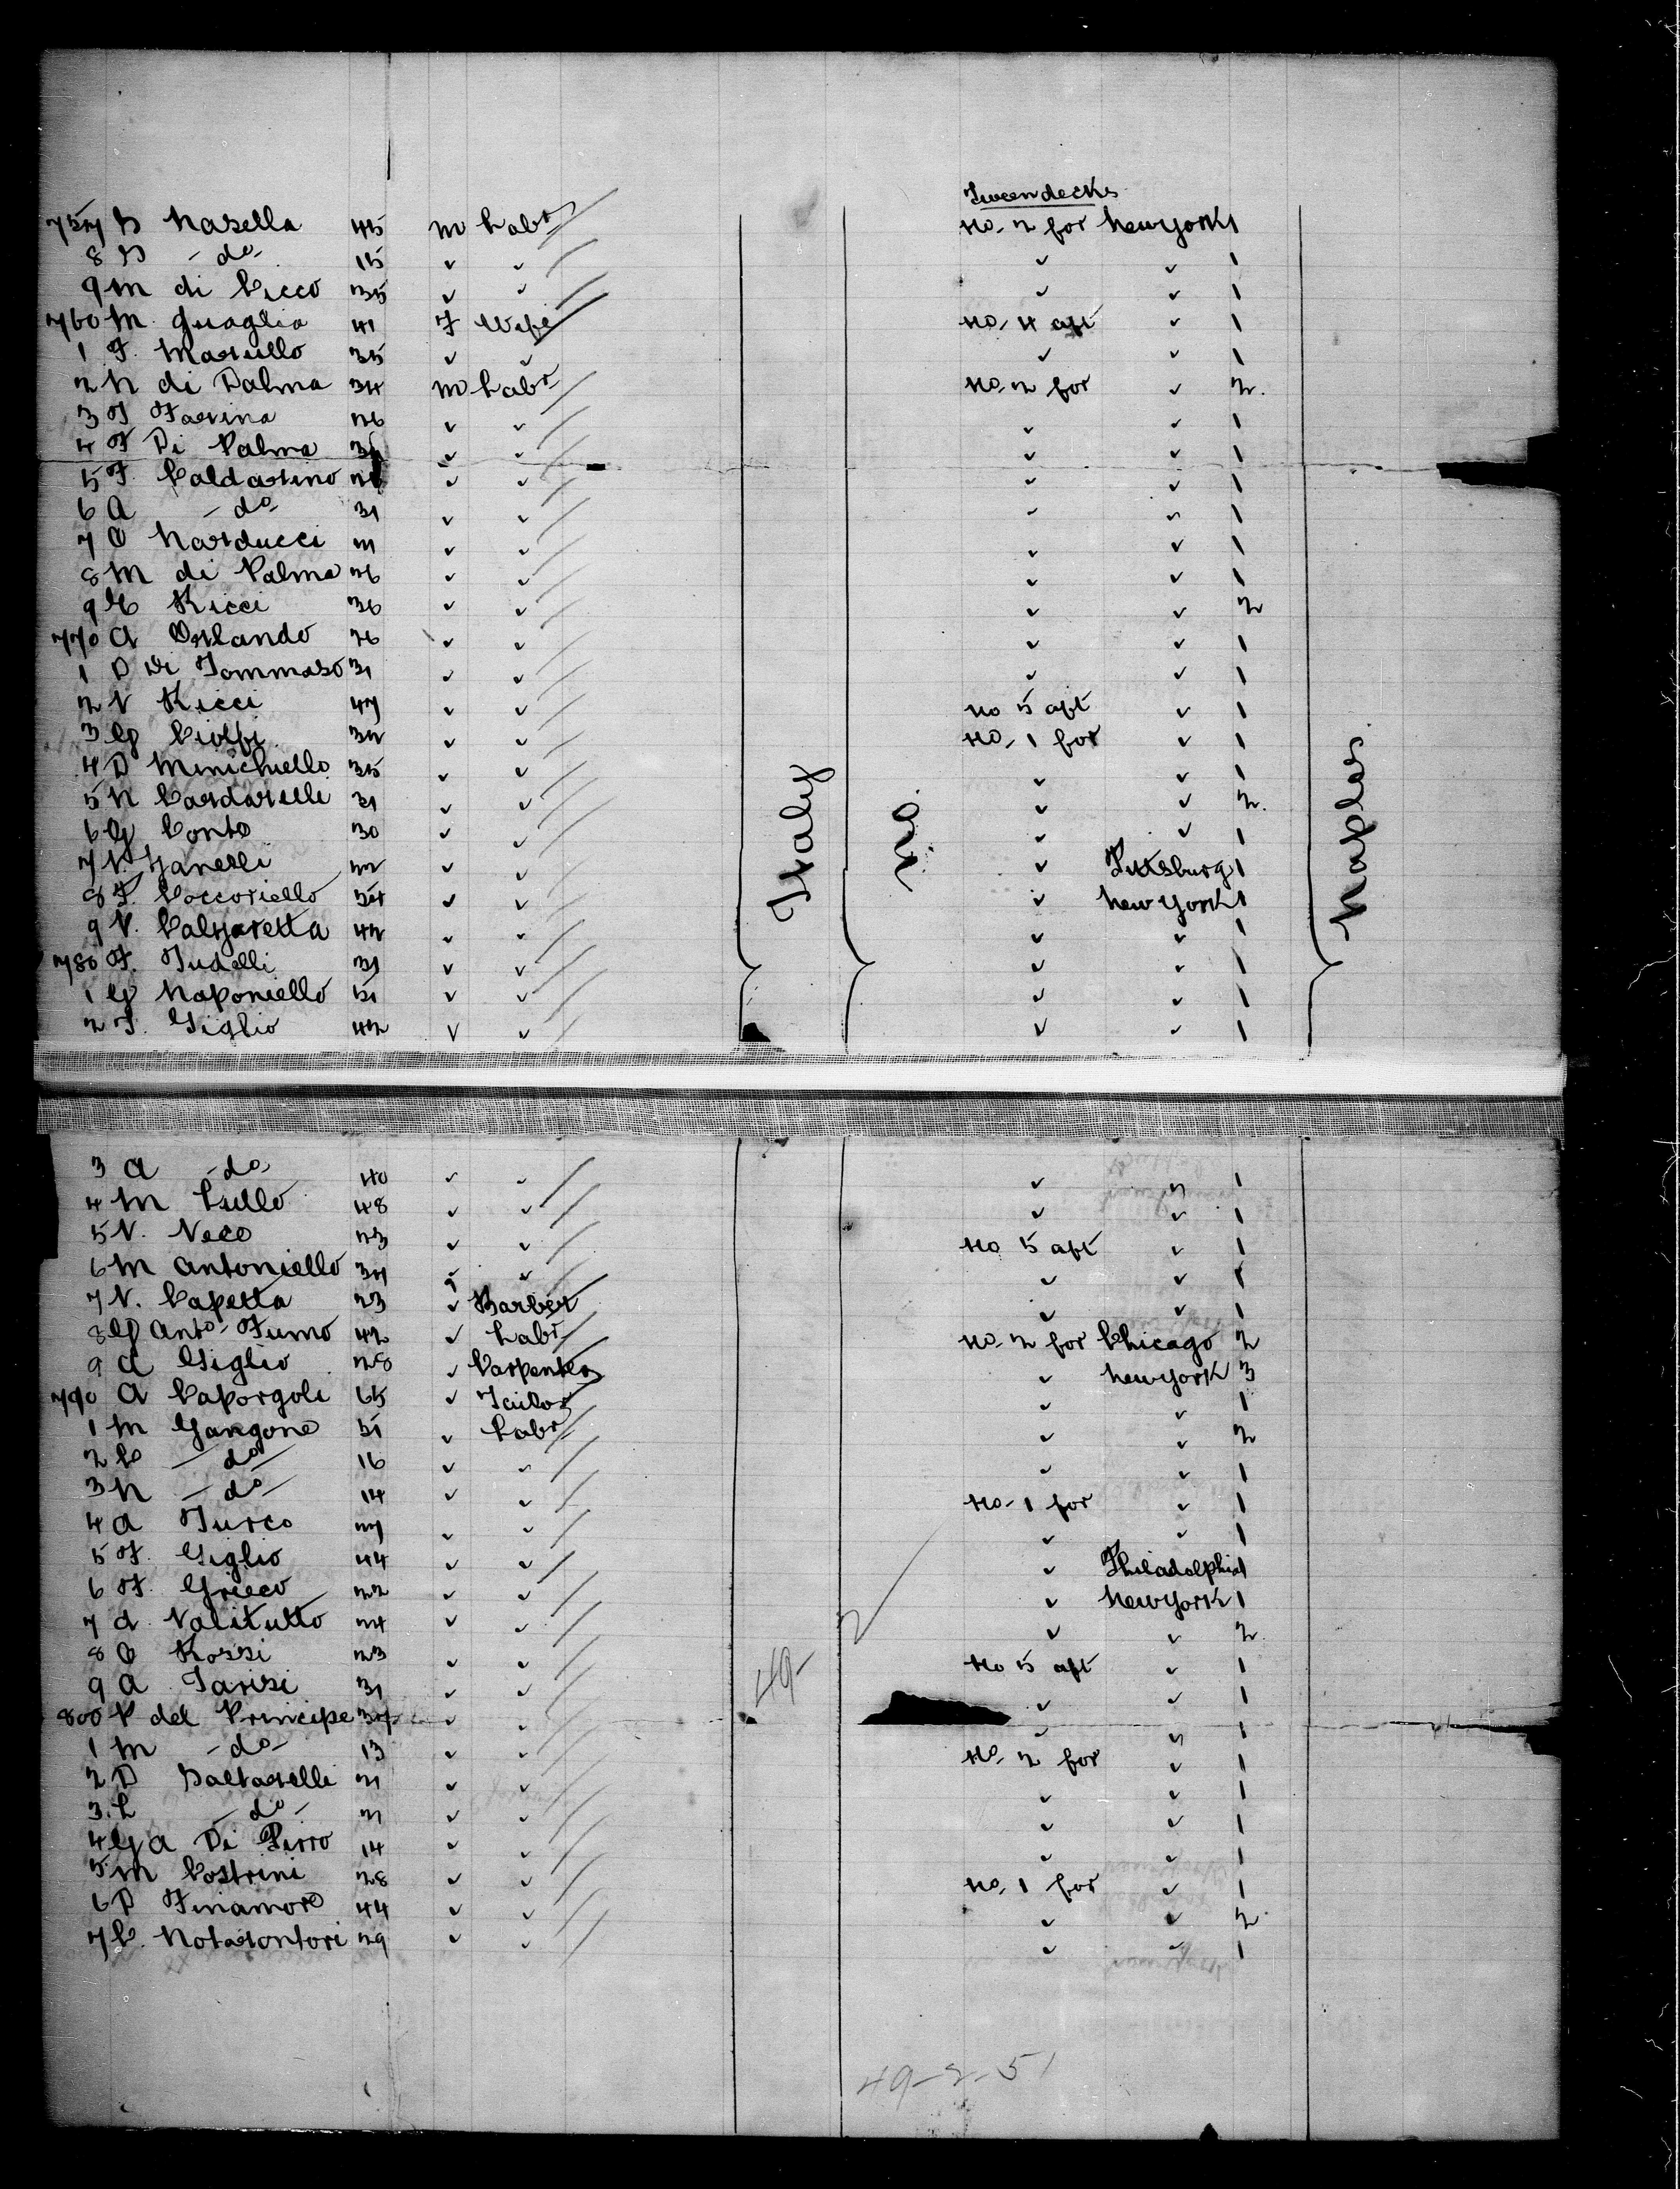 Tweendecks
757 D Masella 45 M Labr No. 2 for New York 1
8 D - do - 15 " " " " 1
9 M di Cicco 35 " " " " 1
760 M. Quaglia 41 F Wife No. 4 aft " 1
1 F. Marullo 35 " " " " 1
2 N di Palma 34 M Labr No. 2 for " 2.
3 F Farina 26 " " " " 1
4 F Di Palma " " " " 1
5 F. Caldarino " " " " 1
6 A - do 31 " " " " 1
7 O Narducci 21 " " " " 1
8 M di Palma 26 " " " " 1
9 Ricci 36 " " " " 2
770 A Orlando 26 " " " " 1
1 D Di Tommaso 31 " " " " 1
2 V Ricci 47 " " No 5 aft " 1
3 G Ciolfi 32 " " No. 1 for " 1
4 D Minichiello 35 " " " " 1
5 N Cardarelli 31 " " " " 2.
6 G Conto 30 " " " " 1
7 V. Ganelli 22 " " " Pittsburg 1
8 F. Coccoriello 34 " " " New York 1
9 V. Calgaretta 42 " " " " 1
780 F. Tudelli 31 " " " " 1
1 G Naponiello 51 " " " " 1
2 F. Giglio 42 " " " " 1
Italy
No.
Naples
3 A - do 40 " " " " 1
4 M Lullo 48 " " " " 1
5 V. Neco 23 " " No 5 aft " 1
6 M Antoniello 34 " " " " 1
7 V. Capetta 23 " Barber " " 1
8 G Anto Fumo 42 " Labr No. 2 for Chicago 2
9 A Giglio 28 " Carpenter " New York 3
790 A Caporgoli 65 " Tailor " " 1
1 M Gangone 51 " Labr " " 2
2 C - do - 16 " " " " 1
3 N - do - 14 " " No. 1 for " 1
4 A Turco 27 " " " " 1
5 F. Giglio 44 " " " Philadelphia 1
6 F. Grieco 22 " " " New York 1
7 A. Valitutto 24 " " " " 2.
8 C Rossi 23 " " No 5 aft " 1
9 A Parisi 31 " " " " 1
49-
2
800 P del Principe 34 " " " " 1
1 M - do - 13 " " No. 2 for " 1
2 D Baltarelli 21 " " " " 1
3. L - do - 21 " " " " 1
4 G A Di Pirro 14 " " " " 1
5 M Costrini 28 " " No. 1 for " 1
6 D Finamore 44 " " " " 2
7 C. Notarontori 29 " " " " 1
49-2-51